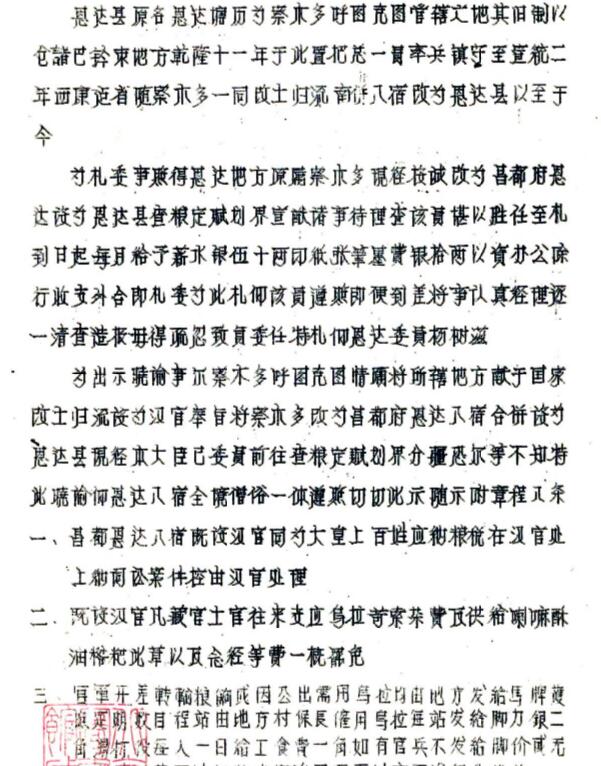 恩达县原名恩达塘历为察木多呼图克图管辖之地其旧制以
仓诸巴管束地方乾隆十一年于此置把总一员率兵镇守至宣统二
年西康建省随察木多一同改土归流而并八宿改为恩达县以至于
今
为札委事照得恩达地方原隶察木多现经核诚改为昌都府恩
达设为恩达县查粮定赋划界宣献诸事待理查该员堪以胜任至札
到日起每月给予薪水银伍十两印纸张笔墨费银拾两以资办公除
行政支外合即札委为此札仰该员遵照即便到差将事认真经理逐
一清查造报毋得疏忽致负委任特札仰恩达委员杨树滋
为出示晓谕事尔察木多呼图克图情愿将所辖地方献于国家
改土归流设为汉官奉旨将察木多改为昌都府恩达八宿合并设为
恩达县现经本大臣已委员前往查粮定赋划界分疆恐尔等不知特
此晓谕仰恩达八宿全境僧俗一体遵照切切此示随示附章程八条
一、昌都恩达八宿既设汉官同为大皇上百姓应纳粮税在汉官处
上纳词讼案件控由汉官处理
二、既设汉官凡藏官土官往来支应乌拉等索茶费及供给喇嘛酥
油糌粑柴草以及念经等费一概豁免
三、官军开差转输粮饷或因公出需用乌拉均由地方发给马牌
目程站由地方村保长雇用乌拉每站发给脚力银二
每人一日给工食费一角如有官兵不发给脚价或无